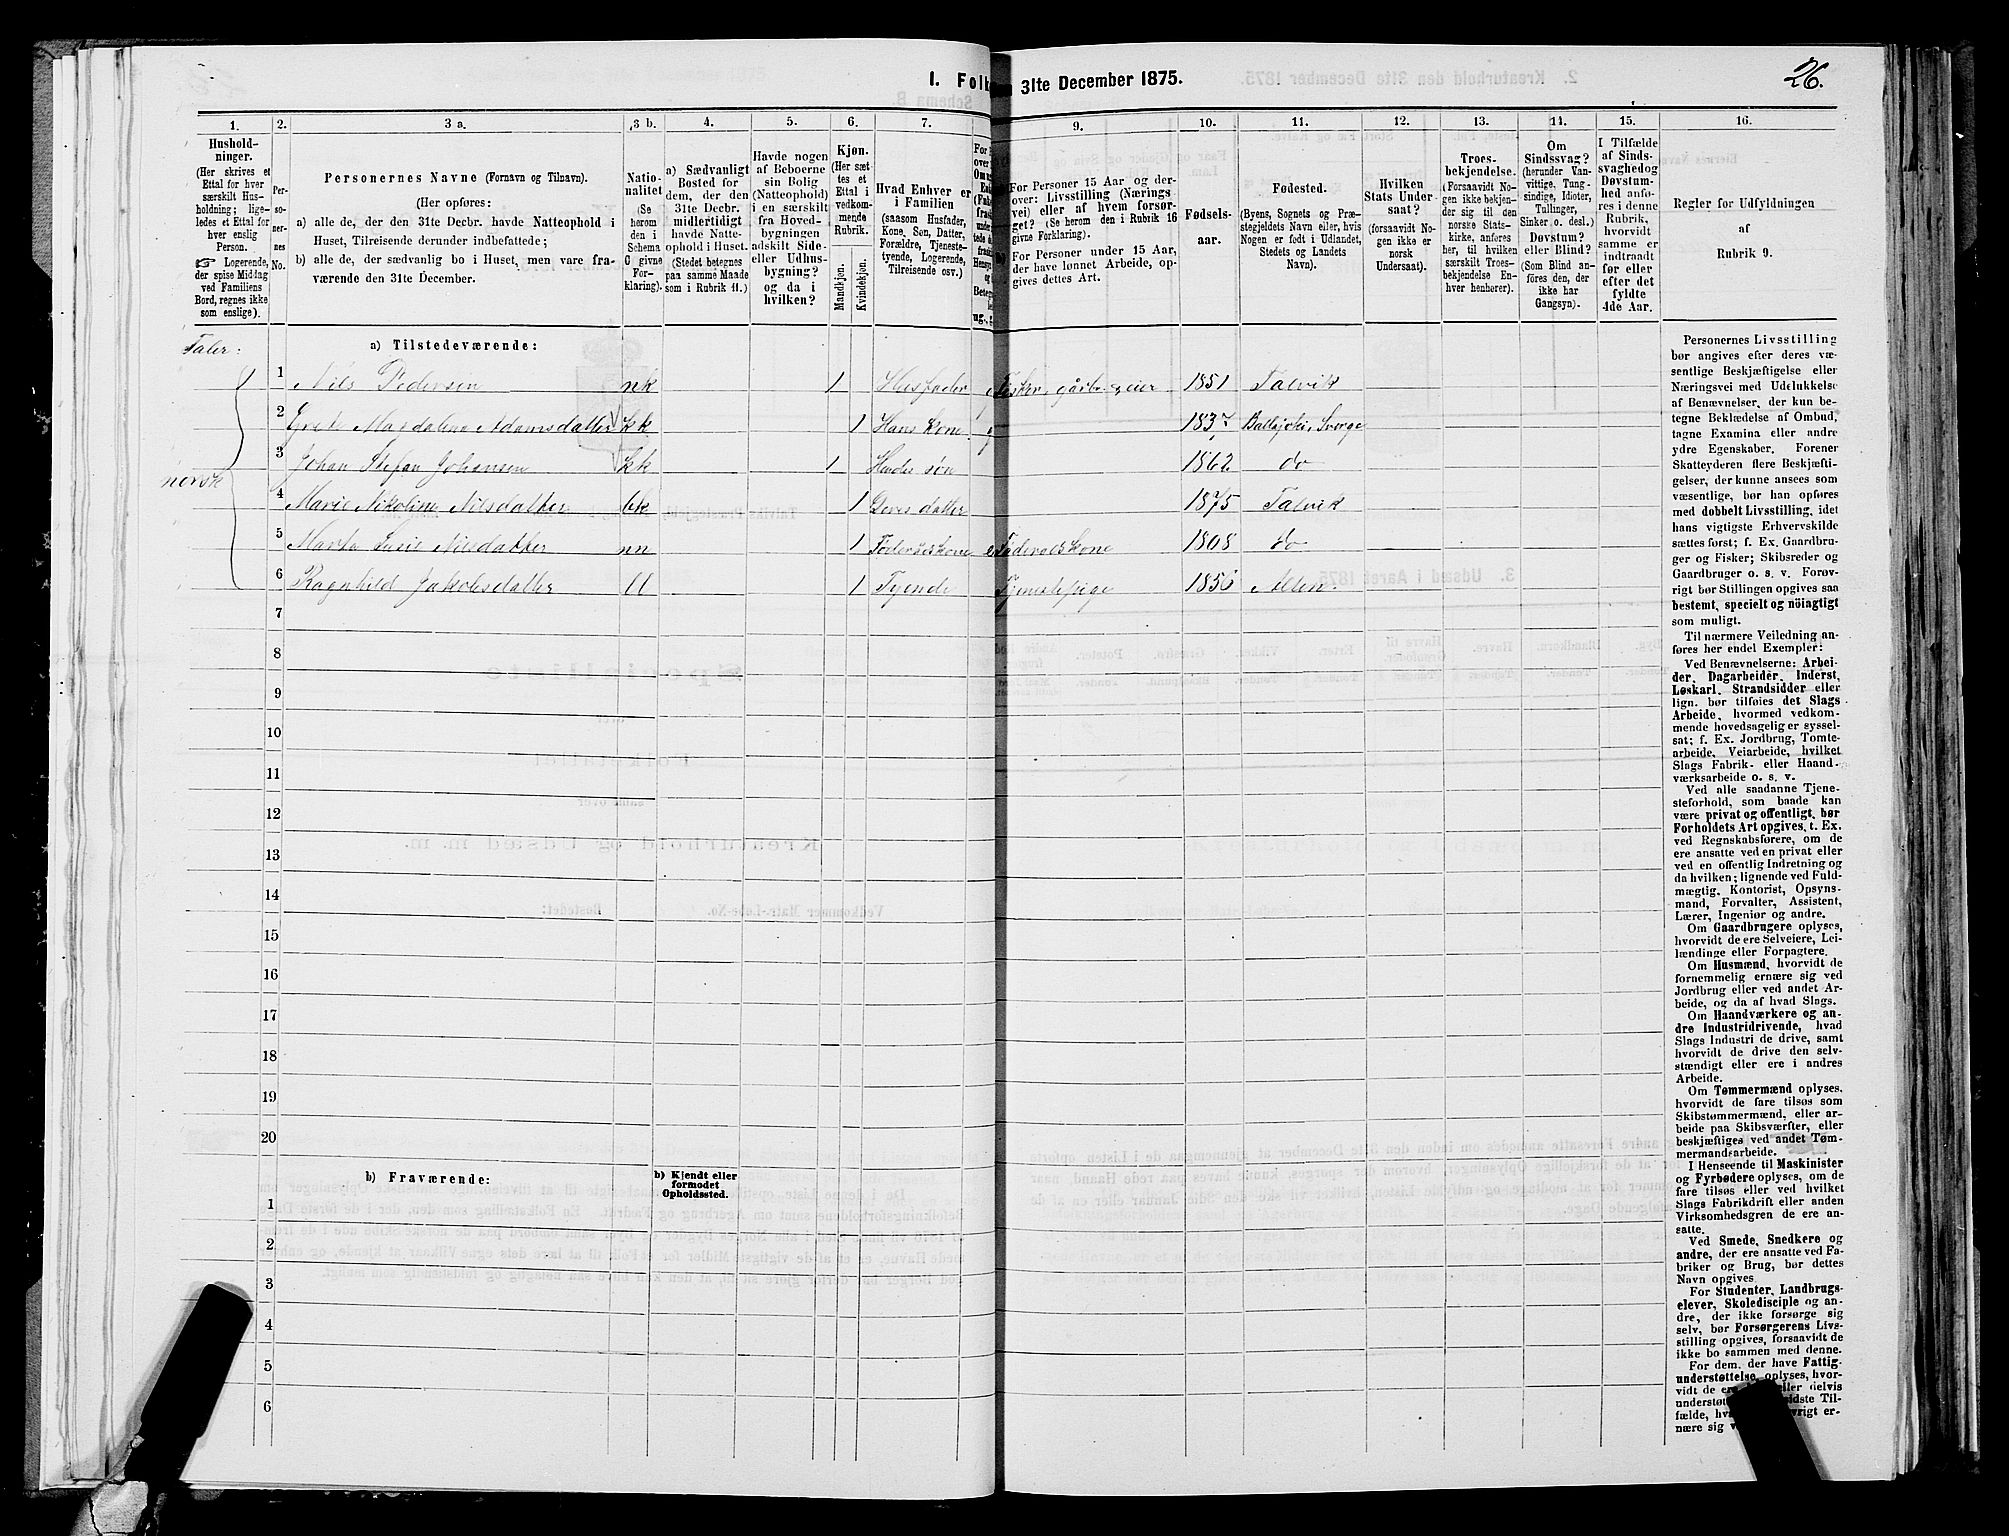 1. Folk
31te December 1875.
26.
1.
2.
3 a.
3 b.
4.
5.
6.
7.
9.
10.
11.
12.
13.
14.
15.
16.
Hushold-
ninger.
(Her skrives et
Ettal for hver
særskilt Hus-
holdning; lige-
ledes et Ettal for
hver enslig
Person.
☞ Logerende,
der spise Middag
ved Familiens
Bord, regnes ikke
som enslige).
Per-
so-
ner-
nes
No.
Personernes Navne (Fornavn og Tilnavn).
(Her opføres:
a) alle de, der den 31te Decbr. havde Natteophold i
Huset, Tilreisende derunder indbefattede;
b) alle de, der sædvanlig bo i Huset, men vare fra-
værende den 31te December.
Natio-
nalitet
(Se
herom
den i
Schema
C givne
For-
klaring).
a) Sædvanligt
Bosted for
dem, der den
31te Decbr.
midlertidigt
havde Natte-
ophold i Huset.
(Stedet betegnes
paa samme Maade
som i Rubrik 11.)
Havde nogen
af Beboerne
sin Bolig
(Natteophold)
i en særskilt
fra Hoved-
bygningen
adskilt Side-
eller Udhus-
bygning?
og da i
hvilken?
Kjøn.
(Her sæt-
tes et
Ettal i
vedkom-
mende
Rubrik.
Mandkjøn.
Kvindekjøn.
Hvad Enhver er
i Familien
(saasom Husfader,
Kone, Søn, Datter,
Forældre, Tjeneste-
tyende, Logerende,
Tilreisende osv.)
For Personer 15 Aar og der-
over: Livsstilling (Nærings-
vei) eller af hvem forsør-
get? (Se herom den i Rubrik 16
givne Forklaring).
For Personer under 15 Aar,
der have lønnet Arbeide, op-
gives dettes Art.
Fødsels-
aar.
Fødested.
(Byens, Sognets og Præ-
stegjeldets Navn eller, hvis
Nogen er født i Udlandet,
Stedets og Landets
Navn).
Hvilken
Stats Under-
saat?
(forsaavidt No-
gen ikke er
norsk
Undersaat).
Troes-
bekjendelse.
(Forsaavidt No-
gen ikke bekjen-
der sig til den
norske Stats-
kirke, anføres
her, til hvilken
særskilt Troes-
bekjendelse En-
hver henhører).
Om
Sindssvag?
(herunder Van-
vittige, Tung-
sindige, Idioter,
Tullinger,
Sinker o. desl.)
Døvstum?
eller Blind?
(Som Blind an-
føres den, der
ikke har
Gangsyn).
I Tilfælde
af Sinds-
svaghed og
Døvstum-
hed anfø-
res i denne
Rubrik,
hvorvidt
samme er
indtraadt
før eller
efter det
fyldte
4de Aar.
Regler for Udfyldningen
af
Rubrik 9.
Taler:
norsk
a) Tilstedeværende:
1 Nils Pedersen nk 1 Husfader Fisker, gårbr. eier 1851 Talvik
2 Grete Magdalina Adamsdatter kk 1 Hans Kone 1837
3 Johan Stefan Johansen kk 1 Hendes søn 1862 do
4 Marie Nikolina Nilsdatter bk 1 Deres datter 1875 Talvik
5 Nilsdatter nn 1 Føderådskone 1808 do
6 Ragnhild Jakobsdatter ll 1 Tyende Tjenestepige 1856 Alten
7
8
9
10
11
12
13
14
15
16
17
18
19
20
b) Fraværende:
b) Kjendt eller
formodet
Opholdssted.
1
2
3
4
5
6
Personernes Livsstilling
bør angives efter deres væ-
sentlige Beskjæftigelse eller
Næringsvei med Udelukkelse
af Benævnelser, der kun be-
tegne Beklædelse af Ombud,
tagne Examina eller andre
ydre Egenskaber. Forener
Skatteyderen flere Beskjæfti-
gelser, der kunne ansees som
væsentlige, bør han opføres
med dobbelt Livsstilling, idet
hans vigtigste Erhvervskilde
sættes først; f. Ex. Gaardbru-
ger og Fisker; Skibsreder og
Gaardbruger o. s. v. Forøv-
rigt bør Stillingen opgives saa
bestemt, specielt og nöiagtigt
som muligt.
Til nærmere Veiledning an-
føres her endel Exempler:
Ved Benævnelserne: Arbei-
der, Dagarbeider, Inderst,
Løskarl, Strandsidder eller
lign. bør tilføies det Slags
Arbeide, hvormed vedkom-
mende hovedsagelig er syssel-
sat; f. Ex. Jordbrug, Tomte-
arbeide, Veiarbeide, hvilket
Slags Fabrik- eller Haand-
værksarbeide o. s. v.
Ved alle saadanne Tjene-
steforhold, som baade kan
være privat og offentligt, bør
Forholdets Art opgives, t. Ex.
ved Regnskabsførere, om de
ere ansatte ved en privat eller
ved en offentlig Indretning og
da hvilken; lignende ved Fuld-
mægtig, Kontorist, Opsyns-
mand, Forvalter, Assistent,
Lærer, Ingeniør og andre.
Om Gaardbrugere oplyses,
hvorvidt de ere Selveiere, Lei-
lændinge eller Forpagtere.
Om Husmænd, hvorvidt de
fornemmelig ernære sig ved
Jordbrug eller ved andet Ar-
beide, og da af hvad Slags.
Om Haandværkere og an-
dre Industridrivende, hvad
Slags Industri de drive, samt
hvorvidt de drive den selv-
stændigt eller ere i andres
Arbeide.
Om Tømmermænd oplyses,
hvorvidt de fare tilsøs som
Skibstømmermænd, eller ar-
beide paa Skibsværfter, eller
beskjæftiges ved andet Tøm-
mermandsarbeide.
I Henseende til Maskinister
og Fyrbødere oplyses, om de
fare tilsøs eller ved hvilket
Slags Fabrikdrift eller anden
Virksomhedsgren de ere an-
satte.
Ved Smede, Snedkere og
andre, der ere ansatte ved Fa-
briker og Brug, bør dettes
Navn opgives
For Studenter, Landbrugs-
elever, Skoledisciple og an-
dre, der ikke forsørge sig
selv, bør Forsørgerens Livs-
stilling opgives, forsaavidt de
ikke bo sammen med denne.
For dem, der have Fattig-
understøttelse, oplyses, hvor-
vidt de ere eller delvis
sidste Til-
fælde, øvrigt er-
nære sig